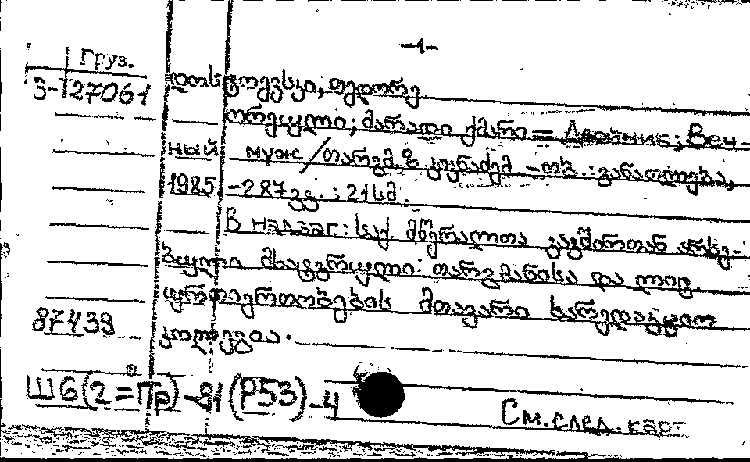 -1-
Груз.
3-127061
დოსტოევსკი, თედორე
ორეული; მარადი ქმარი = Двойник; Веч-
ный муж/თარგმ. ზ. კიკნაძემ -თბ.: განათლება,
1985 -287გვ.: 21სმ.
В надзаг: საქ მწერალთა კავშირთან არსე-
ბული მხატვრული თარგმანისა და ლიტ
ურთიერთობების მთავარი სარედაქციო
87439
კოლეგია.
Ш6(2=Пр)-91(Р53)-4
См. след. карт